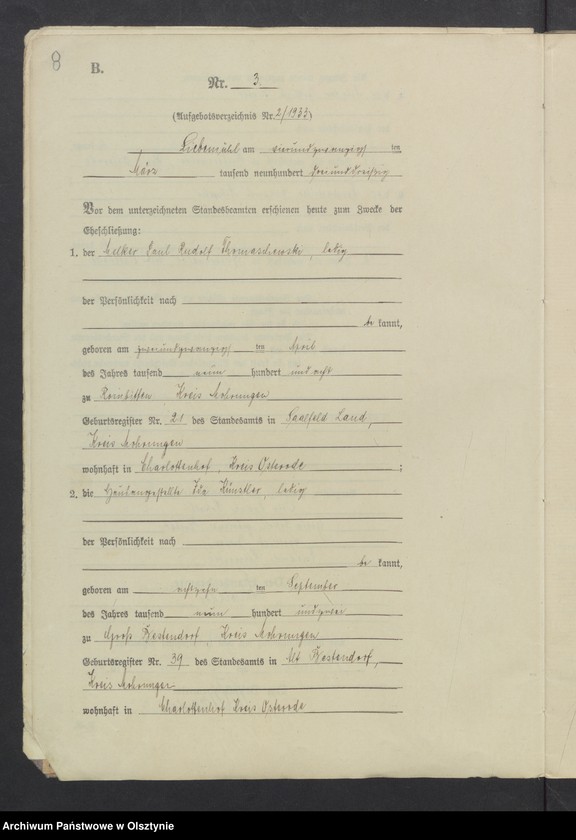 8
B.
Nr. 3.
(Aufgebotsverzeichnis Nr. 2/1933)
Liebemühl am vierundzwanzigsten
März tausend neunhundert dreiunddreißig
Vor dem unterzeichneten Standesbeamten erschienen heute zum Zwecke der
Eheschließung:
1. der Melker Paul Rudolf Thomaschewski, ledig
der Persönlichkeit nach
be kannt,
geboren am zweiundzwanzigsten April
des Jahres tausend neun hundert und acht
zu Kreis Mohrungen
Geburtsregister Nr. 21 des Standesamts in Saalfeld Land,
Kreis Mohrungen
wohnhaft in Charlottenhof, Kreis Osterode ;
2. die Hausangestellte Ida Künstler, ledig
der Persönlichkeit nach
be kannt,
geboren am achtzehnten September
des Jahres tausend neun hundert und zwei
zu Groß Bestendorf, Kreis Mohrungen
Geburtsregister Nr. 39 des Standesamts in Alt Bestendorf,
Kreis Mohrungen
wohnhaft in Charlottenhof Kreis Osterode
Archiwum Państwowe w Olsztynie